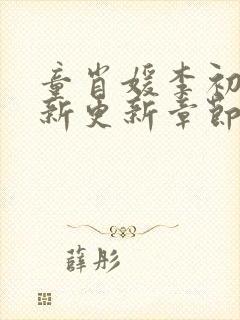 童肖媛李初
新更新章节
薛彤